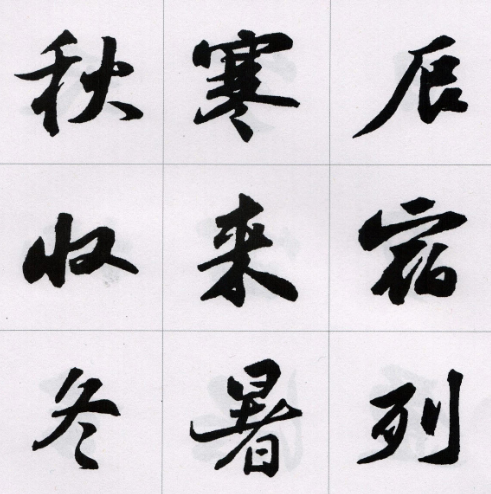 辰宿列
寒来暑
秋收冬